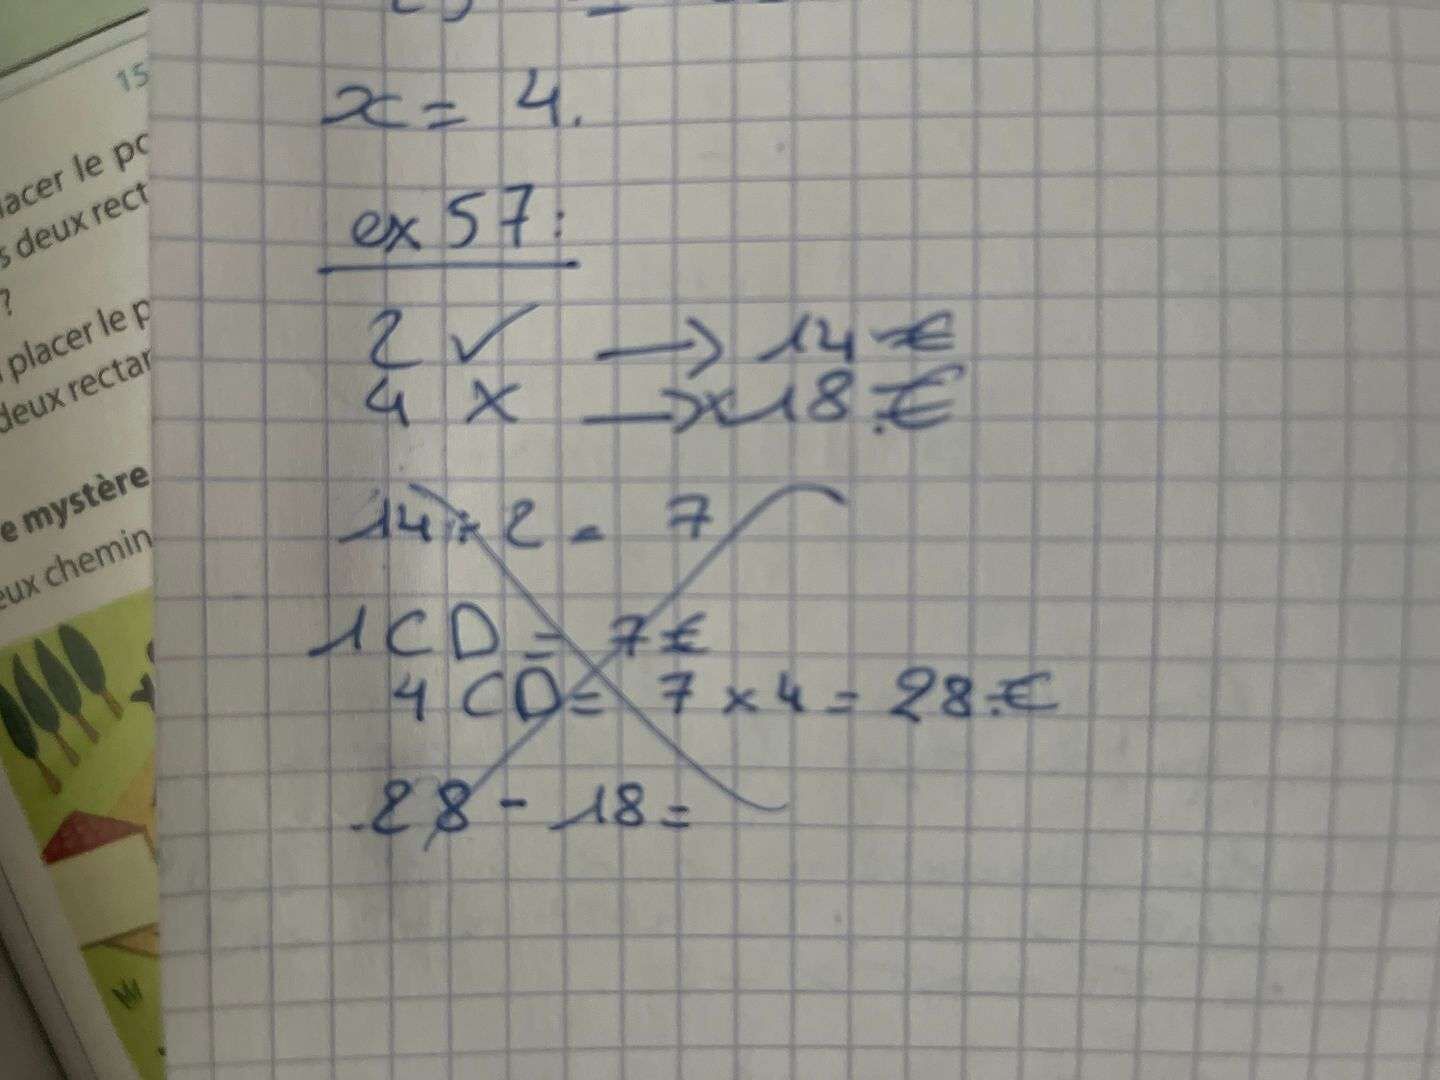 15
lacer le
s deux rect
?
placer le p
deux rectar
e mystère
eux chemin
x = 4.
ex 57:
2 ✓ → 14 €
4 x → x 18 €
14 ÷ 2 = 7
1 CD = 7 €
4 CD = 7 x 4 = 28 €
28 - 18 =